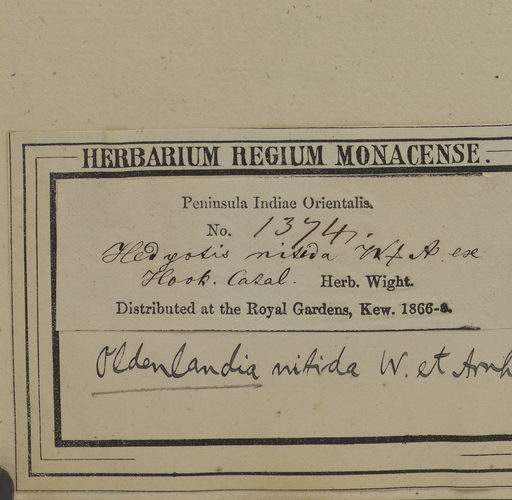 HERBARIUM REGIUM MONACENSE.
Peninsula Indiae Orientalis.
No. 1374.
Hedyotis nitida W & A ex
Hook. Catal. Herb. Wight.
Distributed at the Royal Gardens, Kew. 1866-
Oldenlandia nitida W. et Arnh